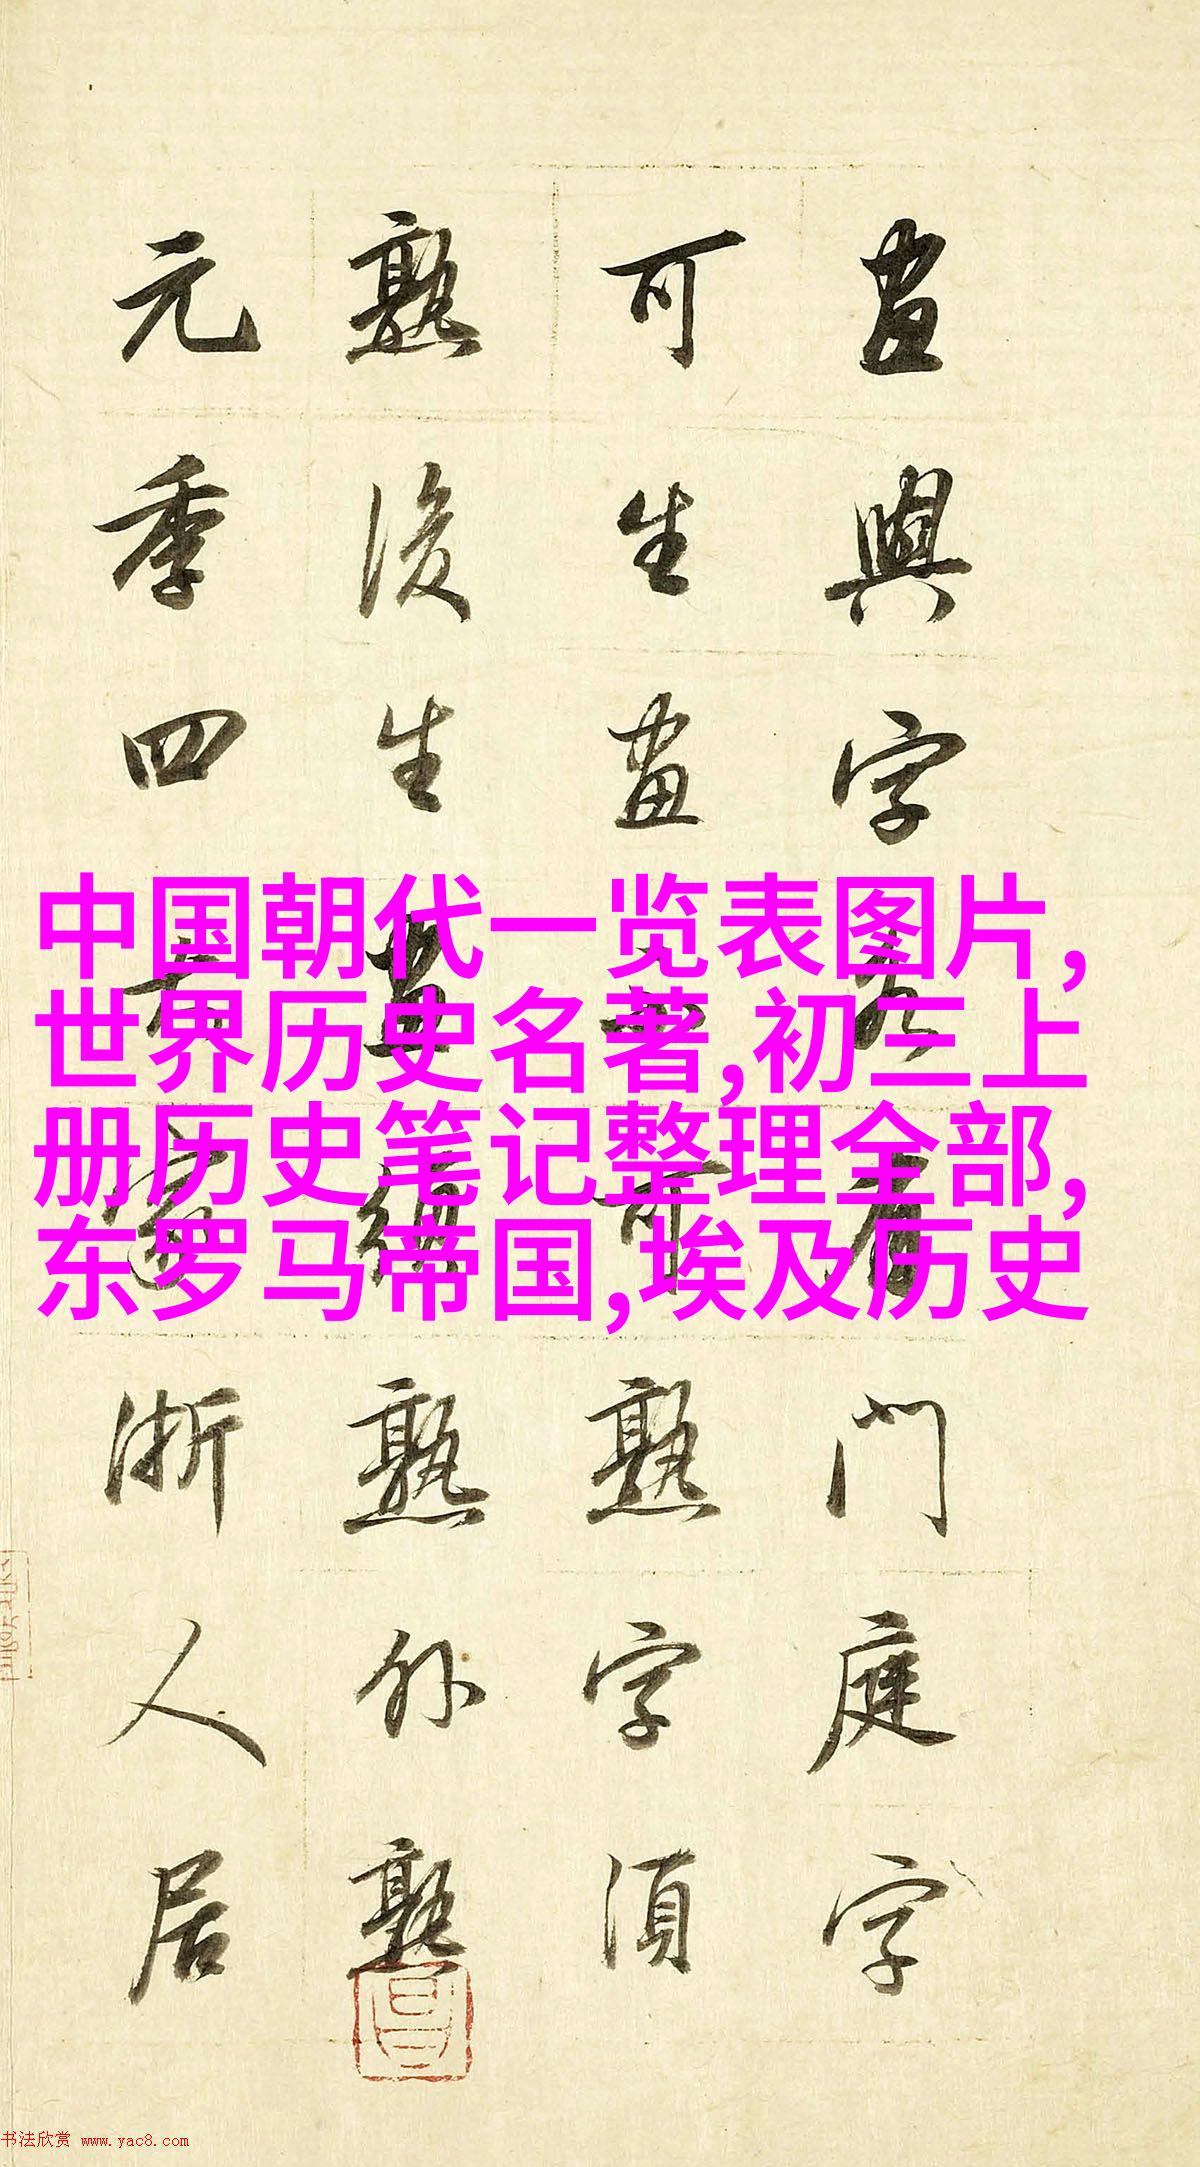 畫與字各有門庭字
可生畫不可熟字須
熟後生畫熟外熟
元季四大家浙人居
中国朝代一览表图片,
世界历史名著,初三上
册历史笔记整理全部,
东罗马帝国,埃及历史
书法欣赏 www.yac8.com